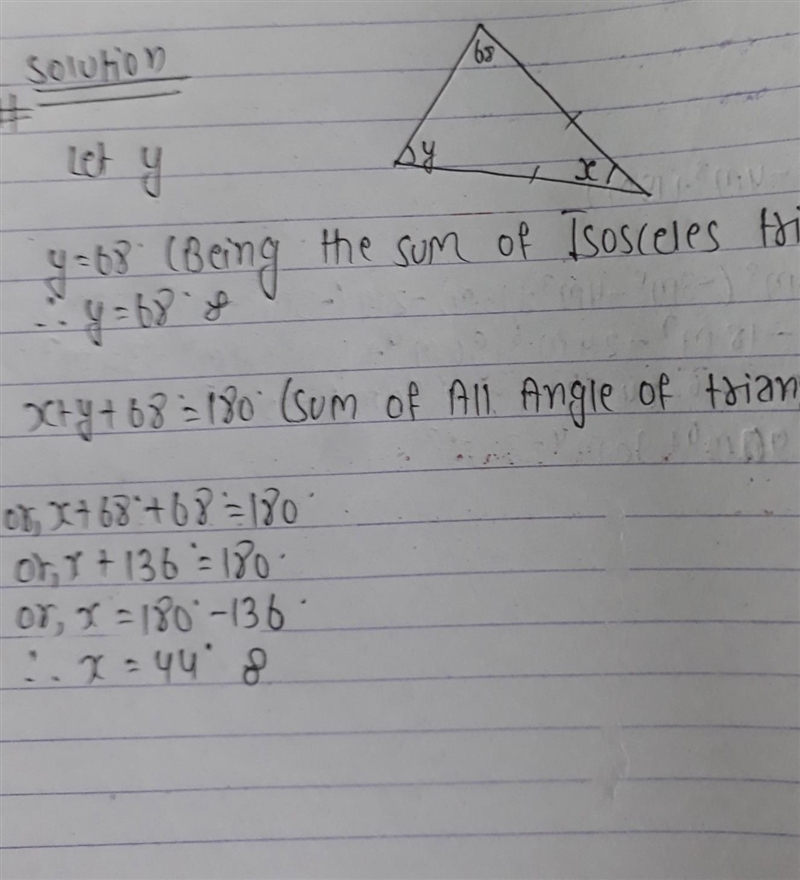 Solution
68
Let y
y
x
y=68° (Being the sum of Isosceles tri
∴ y=68° &
x+y+68°=180° (sum of All Angle of trian
or, x+68°+68°=180°
or, x+136°=180°
or, x=180°-136°
∴ x=44° &